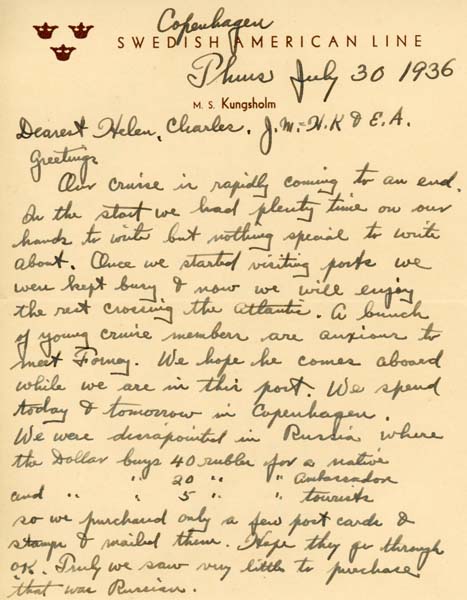 Copenhagen
SWEDISH AMERICAN LINE
Thurs July 30 1936
M. S. Kungsholm
Dearest Helen, Charles, J.M.- H.K & E.A.
Greetings
Our cruise is rapidly coming to an end.
In the start we had plenty time on our
hands to write but nothing special to write
about. Once we started visiting ports we
were kept busy & now we will enjoy
the rest crossing the Atlantic. A bunch
of young cruise members are anxious to
meet Forney. We hope he comes aboard
while we are in this port. We spend
today & tomorrow in Copenhagen.
We were dissapointed in Russia where
the Dollar buys 40 rubles for a native
" " 20 " " " Ambassador
and " " 5 " " tourists
so we purchased only a few post cards &
stamps & mailed them. Hope they go through
OK. Truly we saw very little to purchase
that was Russian.